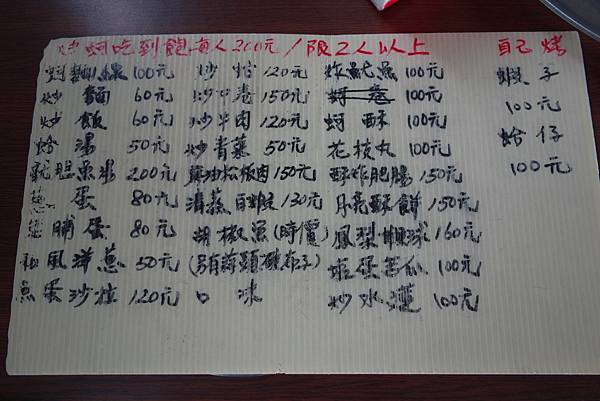 烤蚵吃到飽每人200元/限2人以上 自己烤
蚵麵線100元
炒麵60元
炒飯60元
蛤湯50元
200元
蔥蛋80元
脯蛋80元
和風洋蔥50元
魚蛋沙拉120元
炒蛤120元
炒中卷150元
炒牛肉120元
炒青菜50元
麻油松板肉150元
清蒸 130元
胡椒魚(時價)
(另有蒜頭 樹子)
口味
炸魷魚100元
蚵卷100元
蚵酥100元
花枝丸100元
酥炸肥腸150元
月亮酥餅150元
鳳梨蝦球160元
鹹蛋苦瓜100元
炒水蓮100元
蝦子
100元
蛤仔
100元